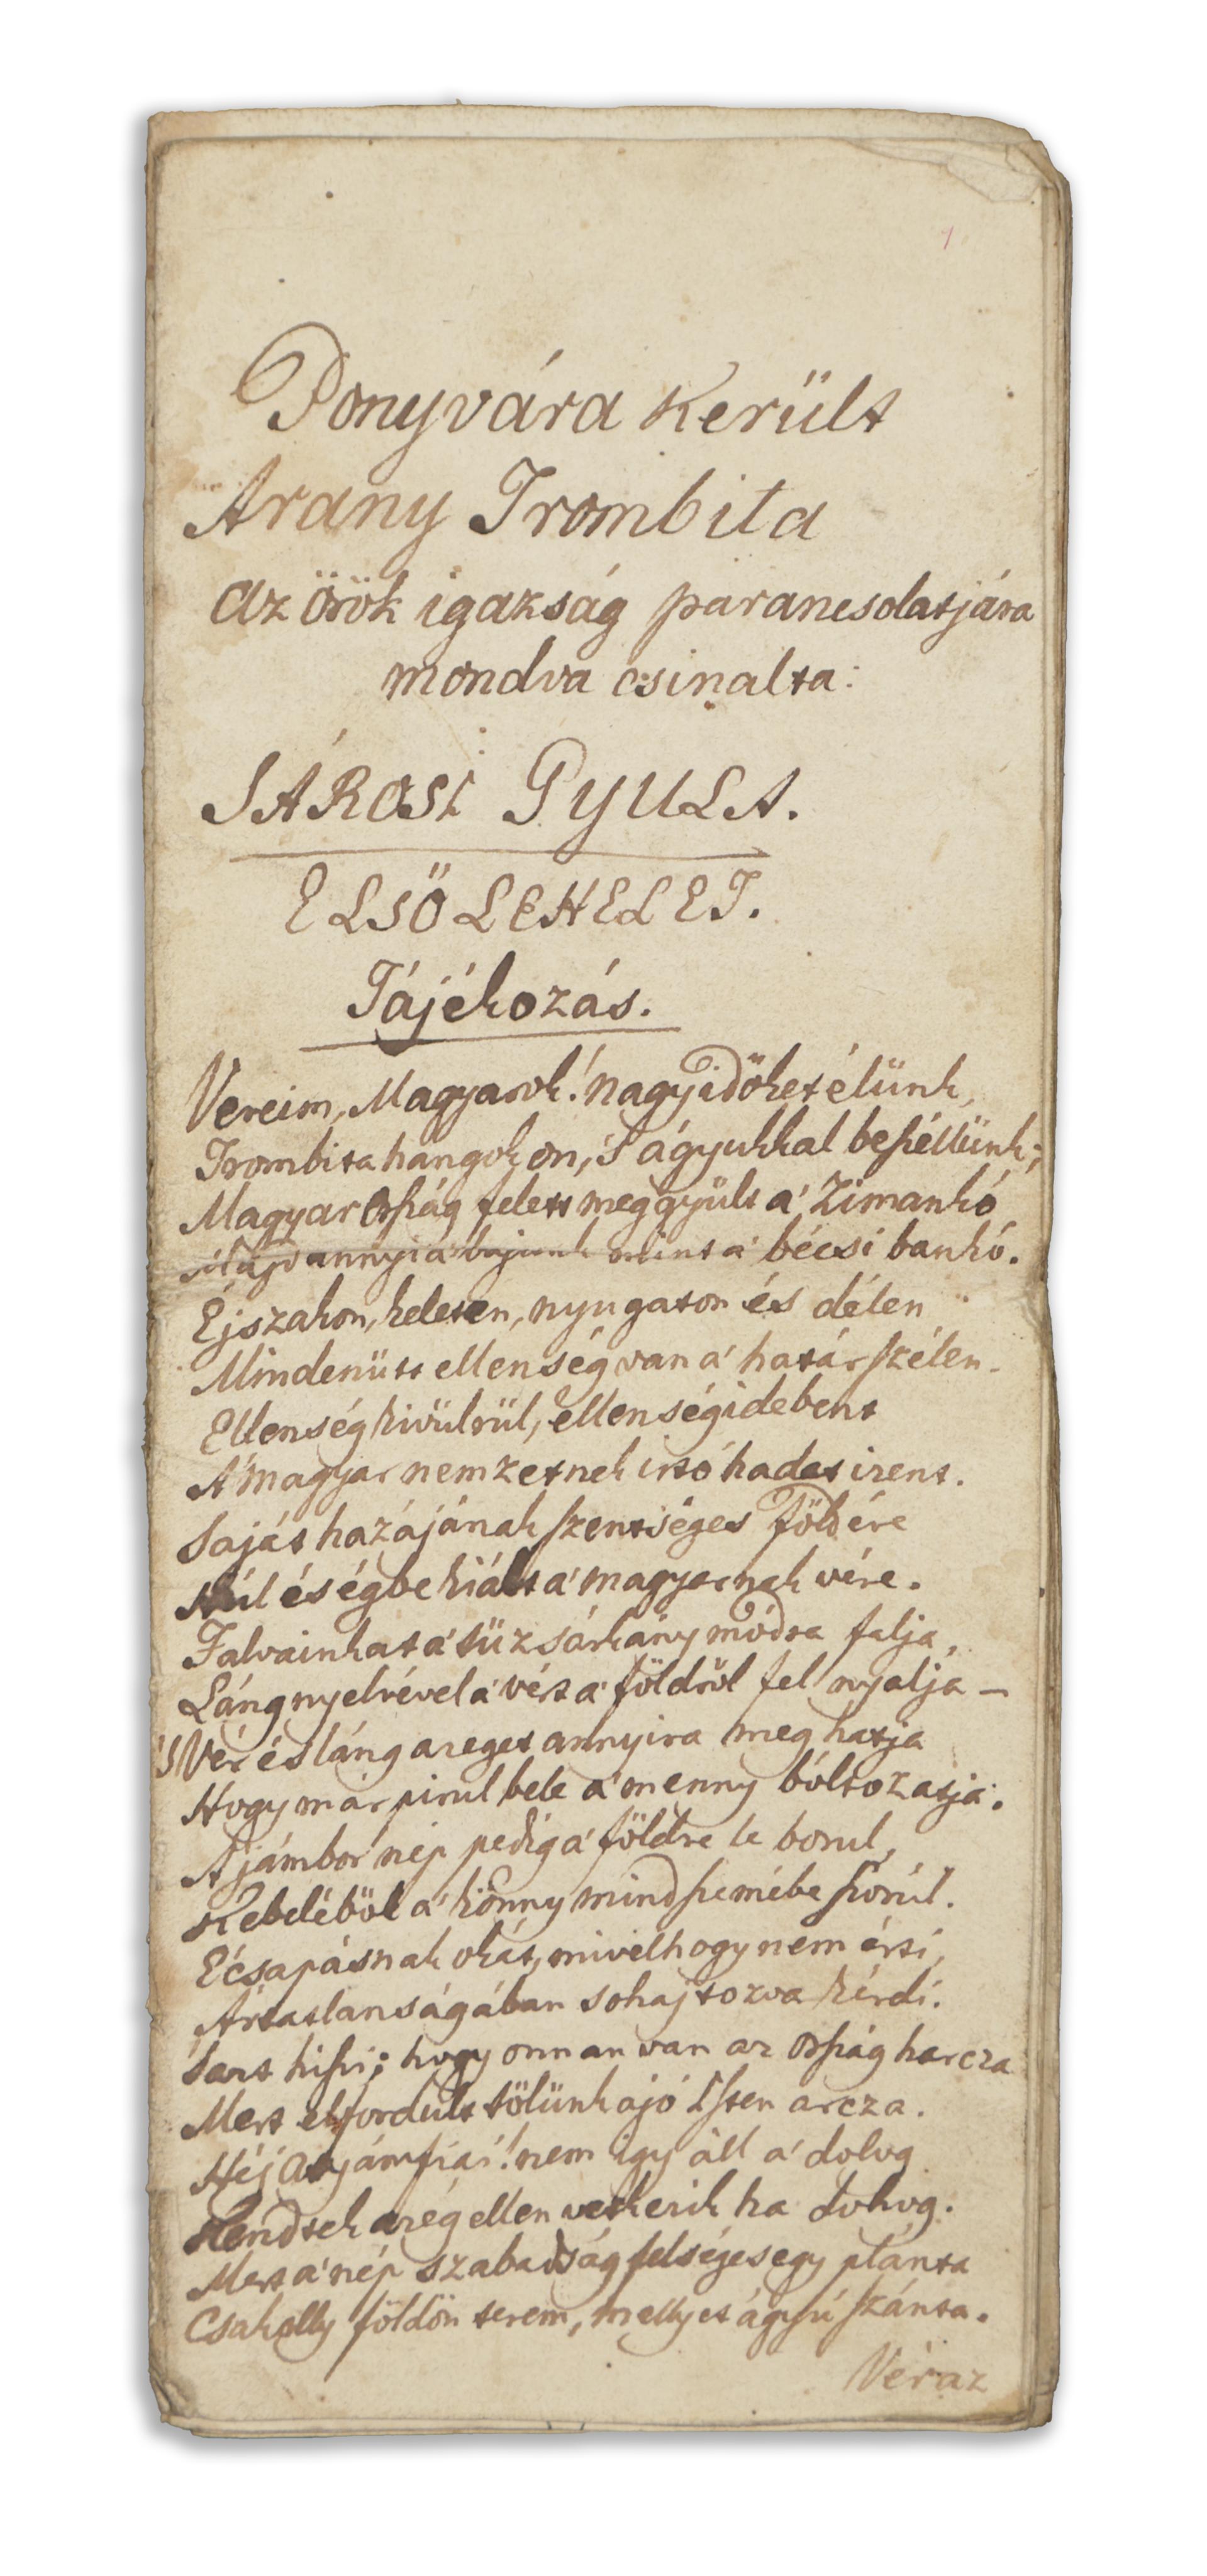 1
Ponyvára Került
Arany Trombita
Az örök igazság parancsolatjára
mondva csinalta:
SÁROSI GYULA.
ELSŐ LEHELET.
Tájékozás.
Véreim, Magyarok! nagy időket élünk,
Trombita hangokon, 's ágyukkal beſzéllünk;
Magyar Orſzág felett meggyült a' Zimankó
Majd annyi a' bajunk mint a' bécsi bankó.
Éjszakon, keleten, nyugaton és délen
Mindenütt ellenség van a' határ ſzélen.
Ellenség kivülrül, ellenség idebent
A' magyar nemzetnek irtó hadat izent.
Saját hazájának ſzentséges földére
Húl és égbe kiált a' magyarnak vére.
Falvainkat a' tüz sárkány módra falja,
Láng nyelvével a' vért a' földről fel nyalja –
'S Vér és láng az eget annyira meg hatja
Hogy már pirul bele a' menny bóltozatja.
A' jámbor nép pedig a' földre le borul,
Kebeléből a' könny mind ſzemébe ſzorúl.
E' csapásnak okát, mivelhogy nem érti,
Ártatlanságában sohajtozva kérdi.
'S azt hiſzi; hogy onnan van az orſzág harcza
Mert elfordult tőlünk a jó Iſten arcza.
Héj Atyámfiai! nem igy áll a' dolog
Rendtek az ég ellen vetkezik ha dohog.
Mert a' nép szabadság felséges egy plánta
Csak olly földön terem, mellyet ágyú ſzánta.
Vér az